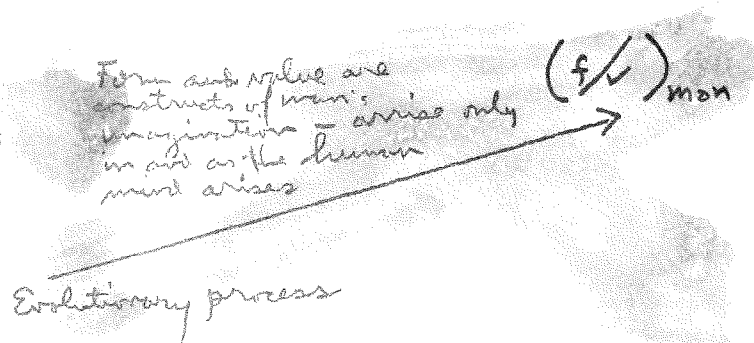 Form and value are
constructs of man's
imagination – arrise only
in and as the human
mind arises
(f/v)man
Evolutionary process